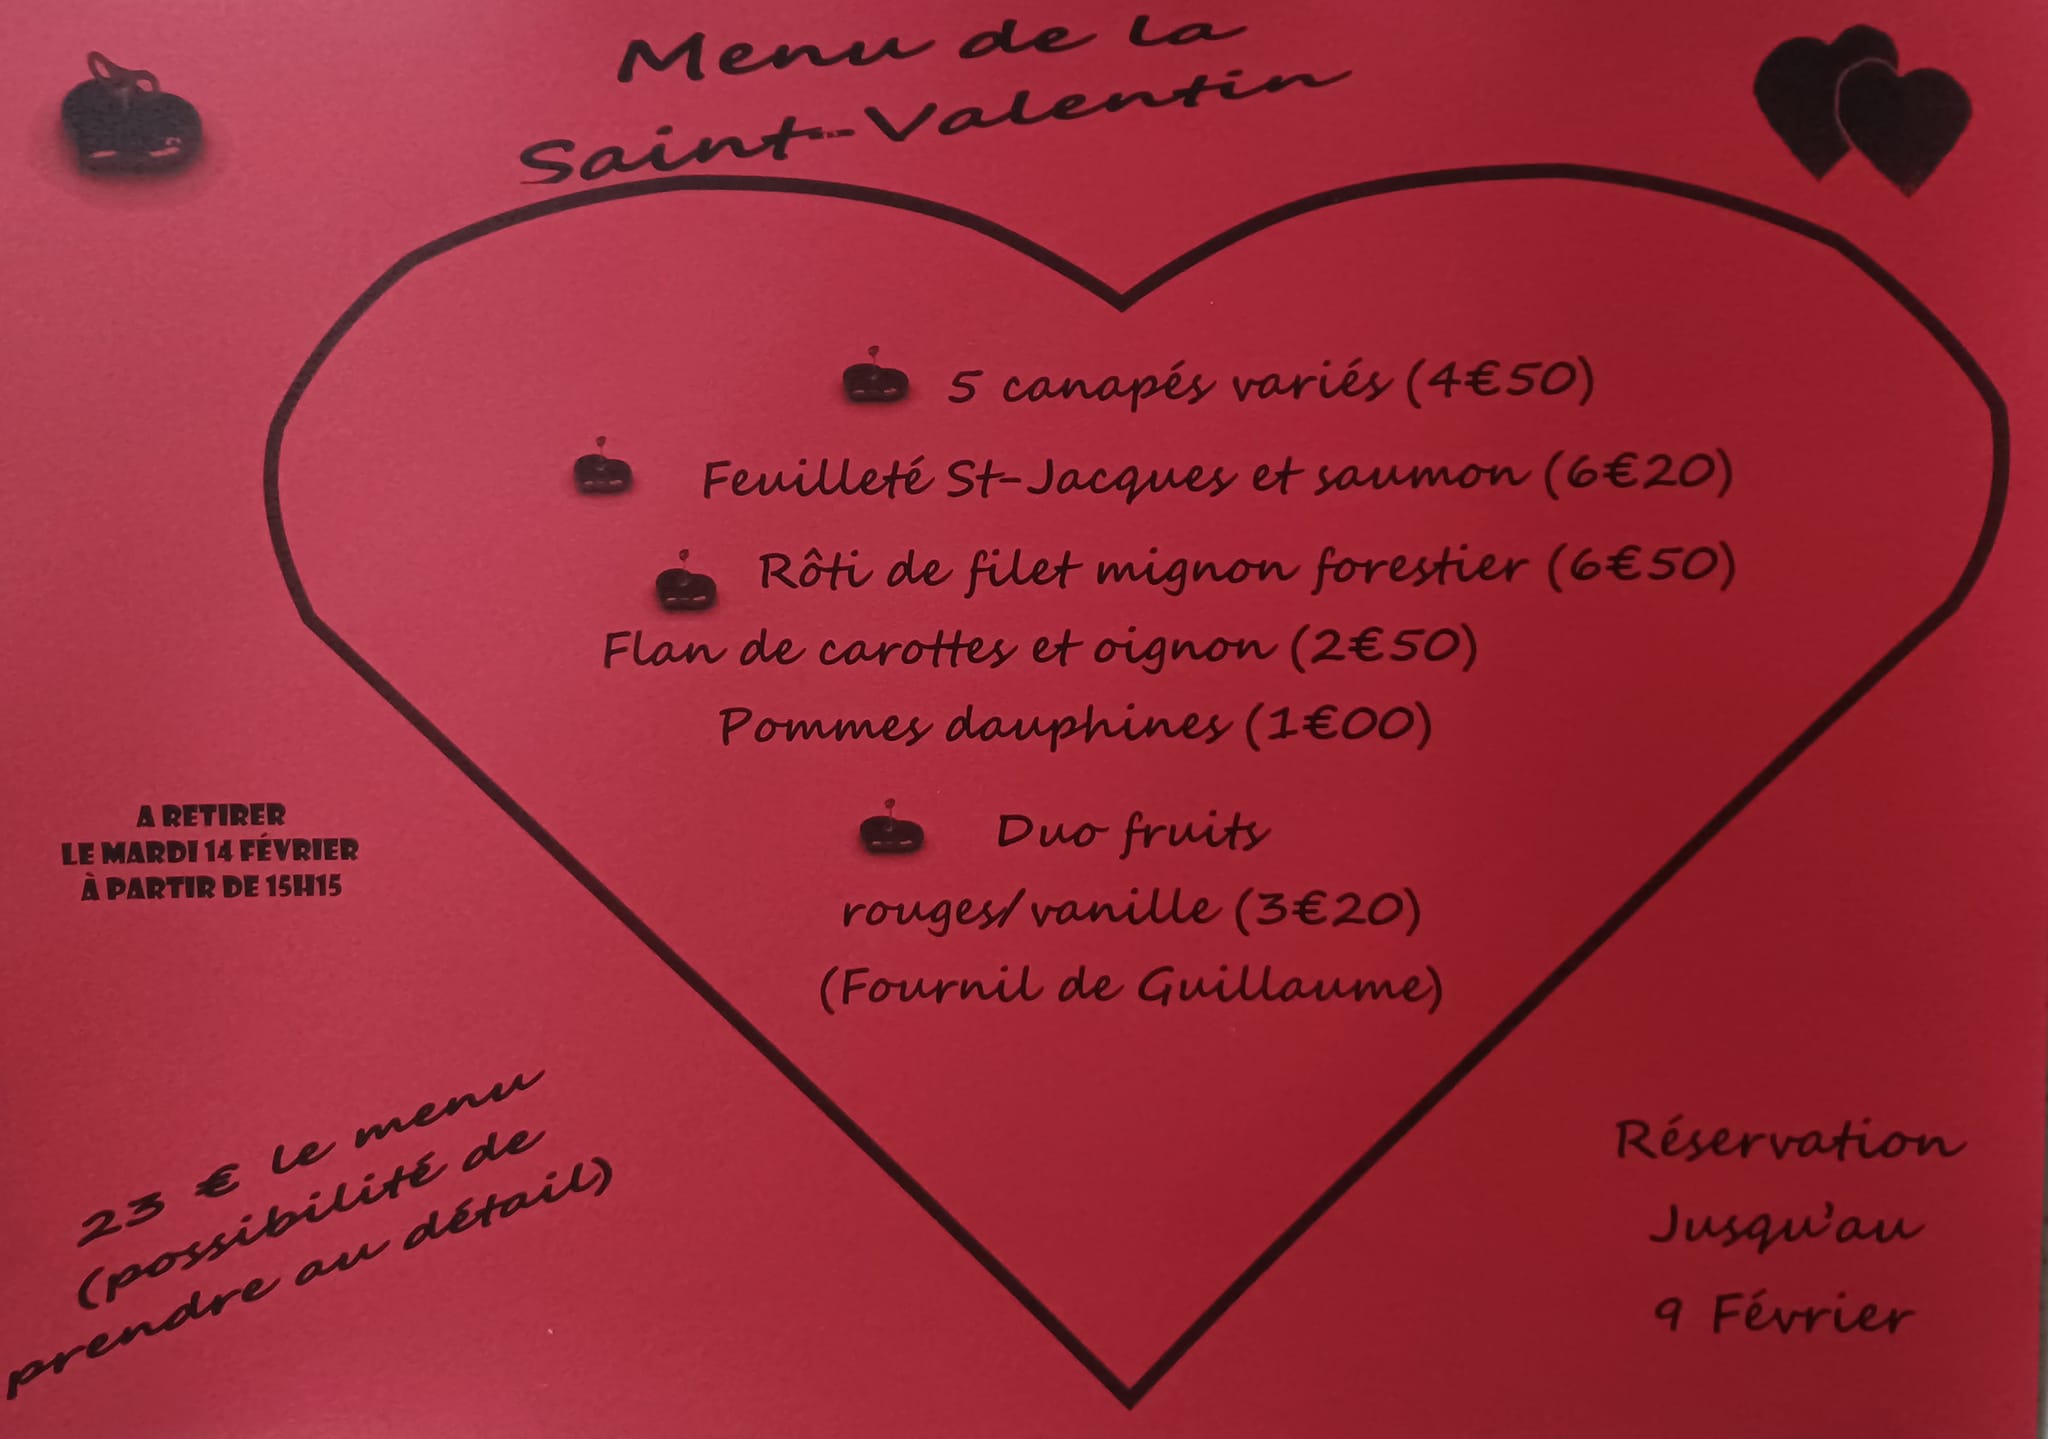 Menu de la
Saint-Valentin
5 canapés variés (4€50)
Feuilleté St-Jacques et saumon (6€20)
Rôti de filet mignon forestier (6€50)
Flan de carottes et oignon (2€50)
Pommes dauphines (1€00)
Duo fruits
rouges/vanille (3€20)
(Fournil de Guillaume)
A RETIRER
LE MARDI 14 FÉVRIER
À PARTIR DE 15H15
23 € le menu
(possibilité de
prendre au détail)
Réservation
Jusqu'au
9 Février